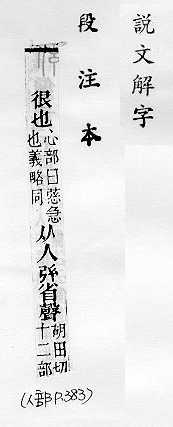 説文解字
段注本
很也、
心部曰急
也義略同
从人弦省聲
胡田切
十二部
(人部P.383)